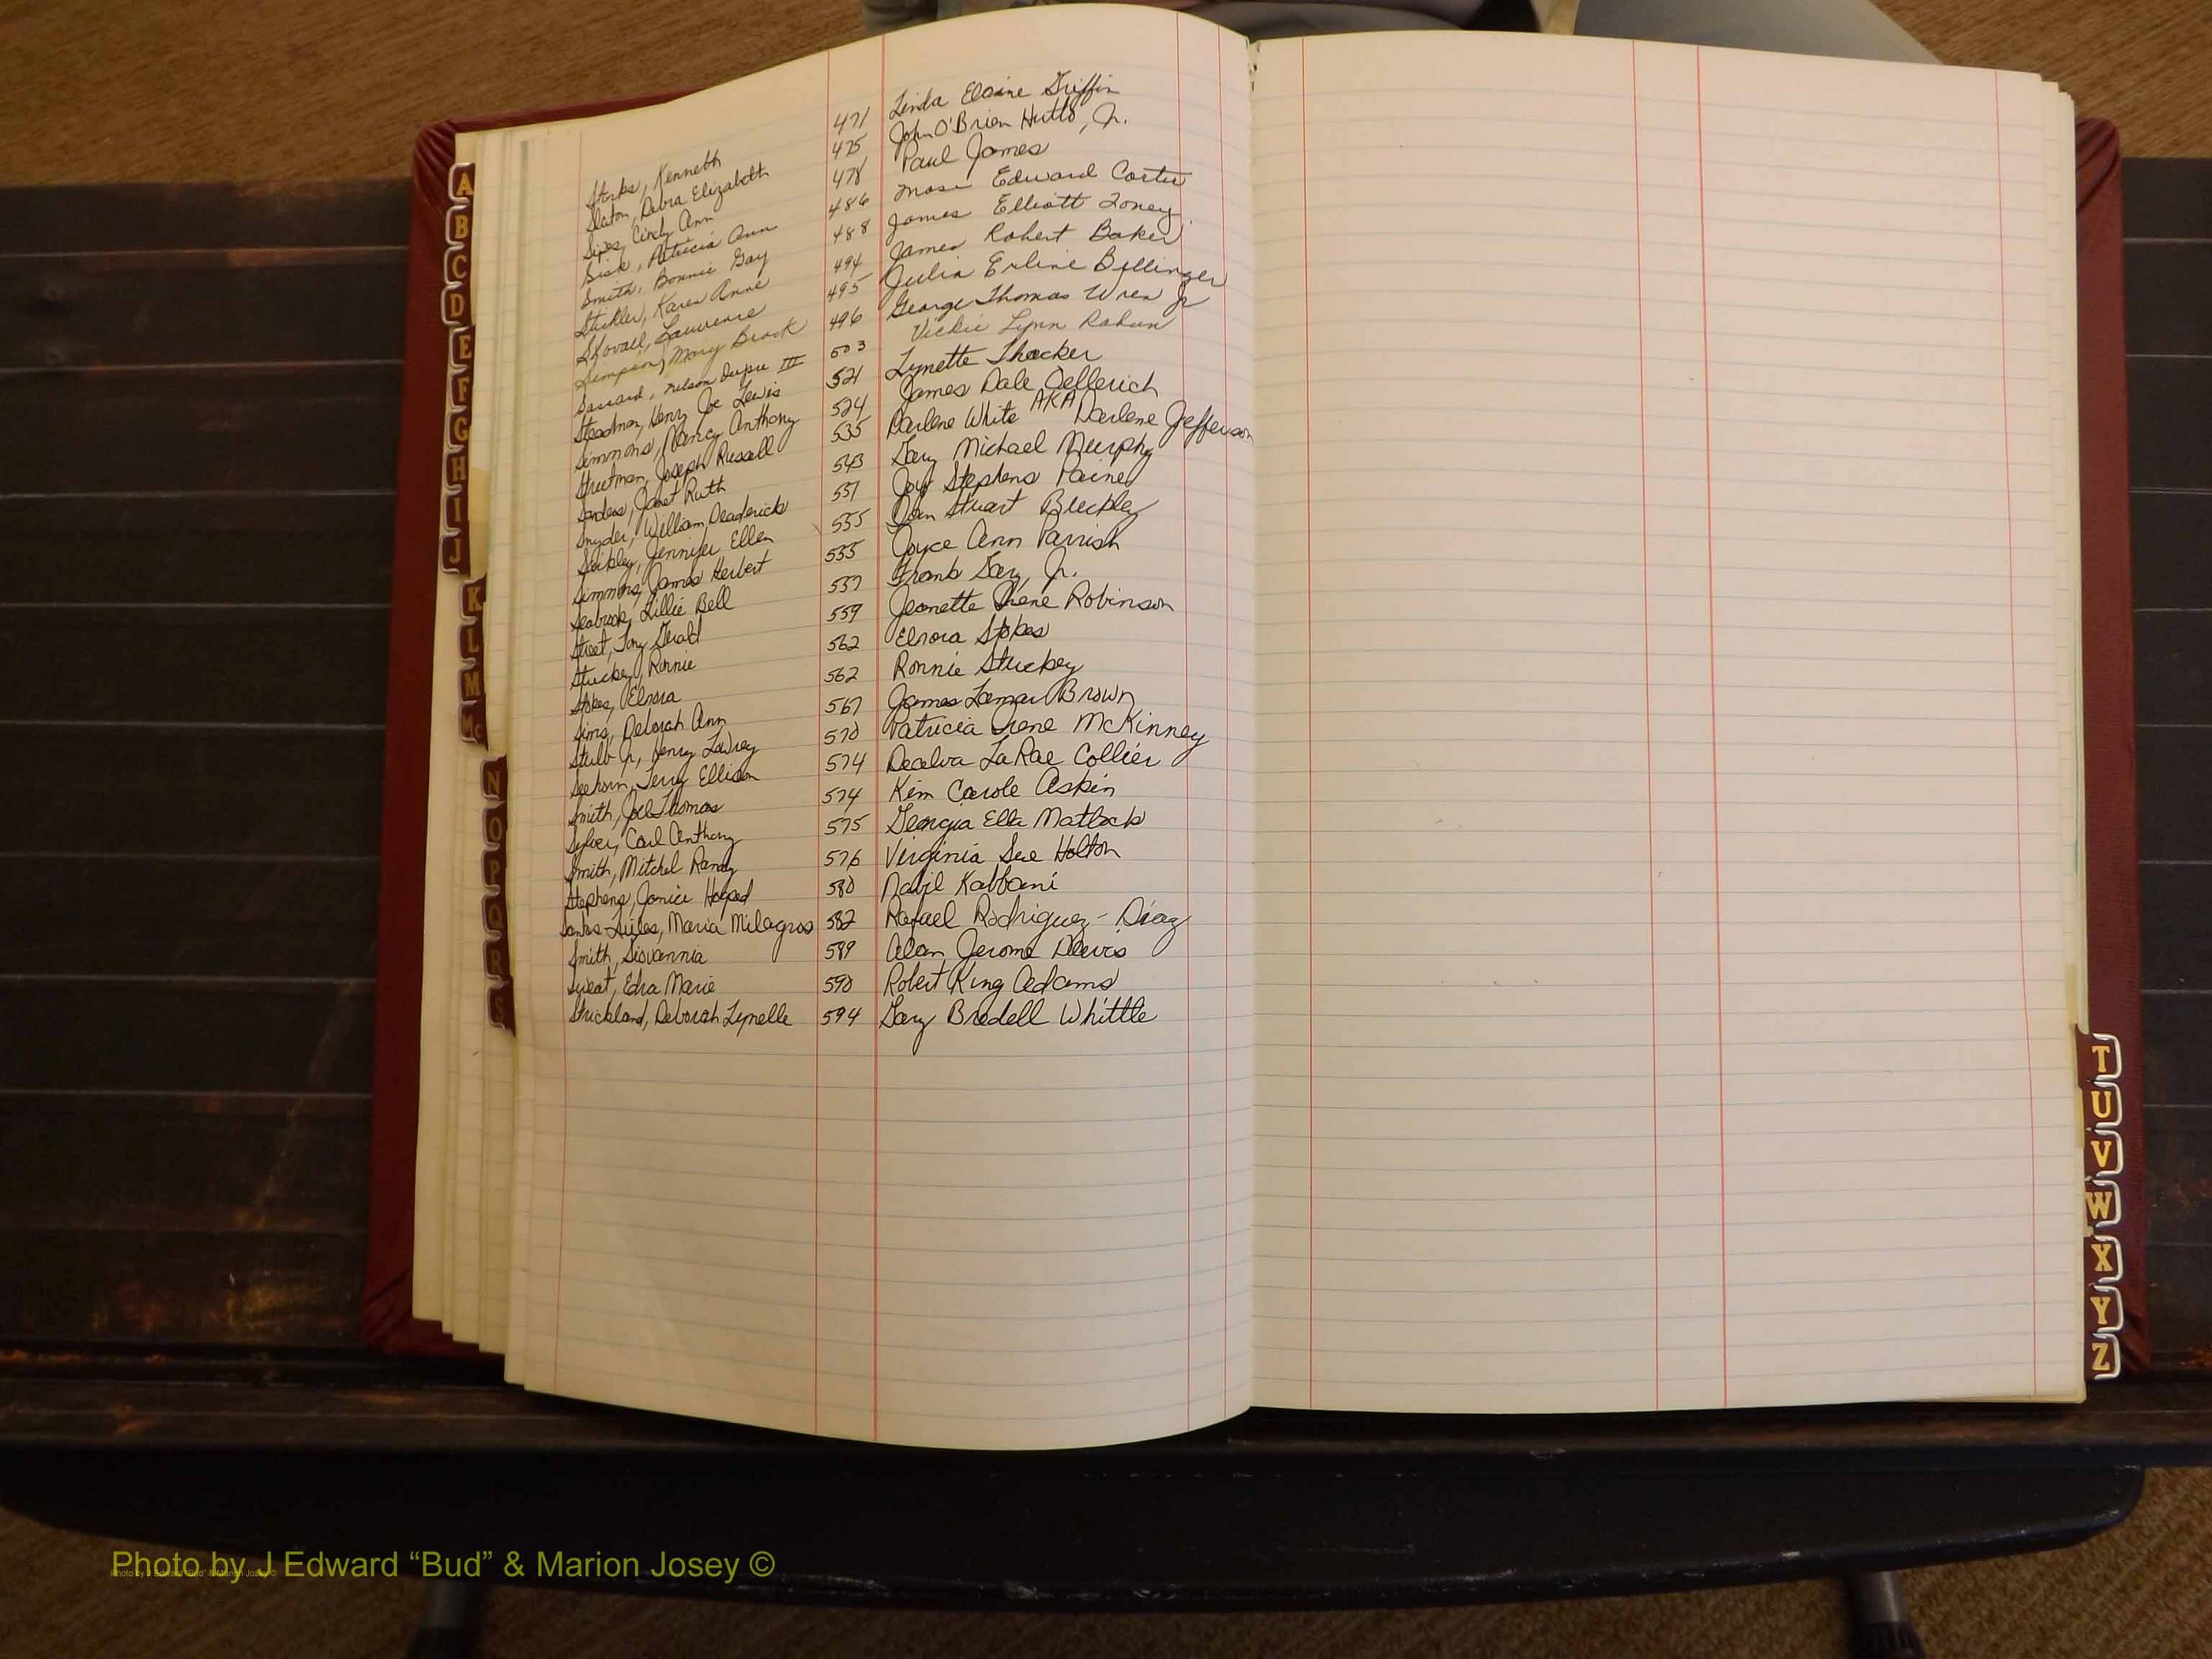 Starks, Kenneth 471 Linda Elaine Griffin
Slaton, Debra Elizabeth 475 John O'Brien Hutto, Jr.
Sipes, Cindy Ann 478 Paul James
Sisk, Patricia Ann 486 Mose Edward Carter
Smith, Bonnie Gay 488 James Elliott Toney
Stickler, Karen Anne 494 James Robert Baker
Stovall, Lawrence 495 Julia Erline Bellinger
Simpson, Mary Brock 496 George Thomas Wren Jr
Sassard, Nelson Dupre III 503 Vickie Lynn Rahun
Steadman, Henry Joe Lewis 521 Lynette Thacker
Simmons, Nancy Anthony 524 James Dale Oellerich
Streetman, Joseph Russell 535 Darlene White AKA Darlene Jefferson
Sanders, Janet Ruth 543 Gary Michael Murphy
Snyder, William Deaderick 551 Joy Stephens Paine
Jennifer Ellen 555 Dan Stuart Buckley
Simmons, James Herbert 555 Joyce Ann Parrish
Seabrook, Lillie Bell 557 Frank Gary, Jr.
Street, Tony Gerald 559 Jeanette Irene Robinson
Stuckey, Ronnie 562 Elnora Stokes
Stokes, Elnora 562 Ronnie Stuckey
Sims, Deborah Ann 567 James Lamar Brown
Stulb Jr, Henry Lawrey 570 Patricia Irene McKinney
Seehorn, Terry Ellison 574 Decelva LaRae Collier
Smith, Joe Thomas 574 Kim Carole Askin
Sylver, Carl Anthony 575 Georgia Ella Matlock
Smith, Mitchel Randy 576 Virginia Sue Holton
Stephens, Janice 580 Nabil Kabbani
Santos-Aviles, Maria Milagros 582 Rafael Rodriguez-Diaz
Smith, Siovannia 589 Alan Jerome Davis
Sweat, Edra Marie 590 Robert King Adams
Strickland, Deborah Lynelle 594 Gary Bredell Whittle
A
B
C
D
E
F
G
H
I
J
K
L
M
Mc
N
O
P
Q
R
S
T
U
V
W
X
Y
Z
Photo by J Edward “Bud” & Marion Josey ©